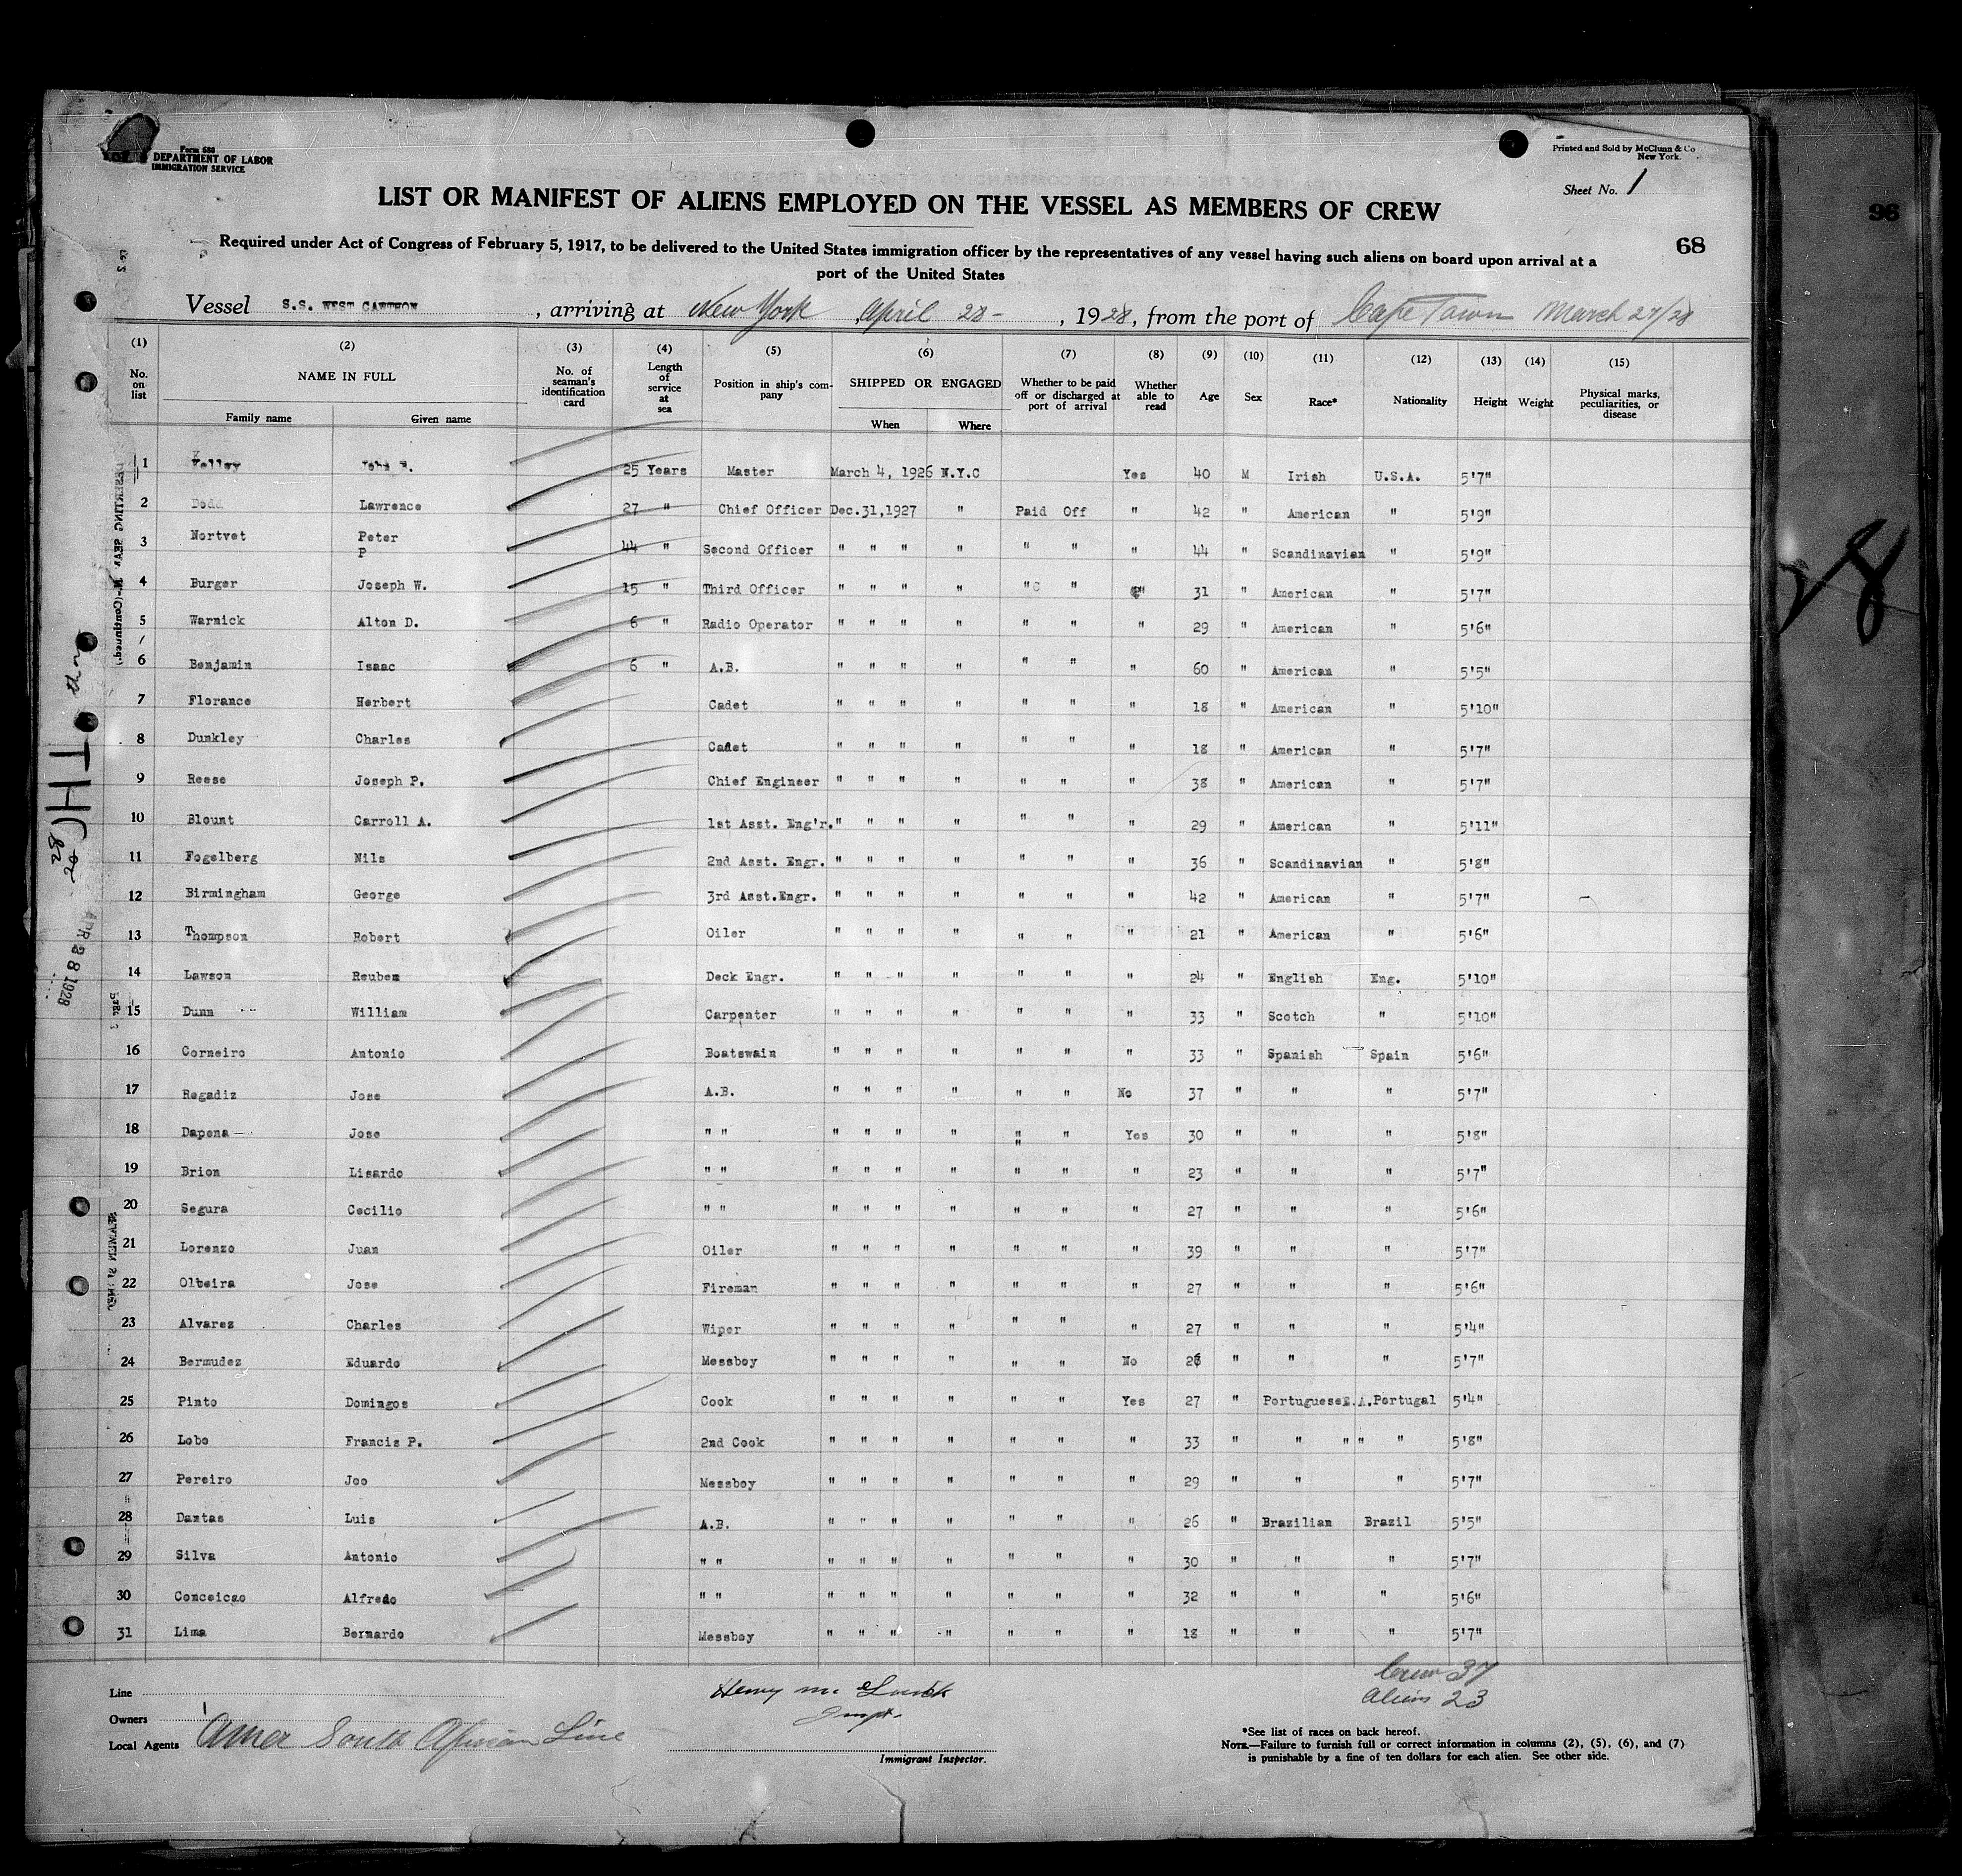 Form 680
DEPARTMENT OF LABOR
IMMIGRATION SERVICE
Printed and Sold by McClunn & Co
New York.
Sheet No. 1
LIST OR MANIFEST OF ALIENS EMPLOYED ON THE VESSEL AS MEMBERS OF CREW
68
96
Required under Act of Congress of February 5, 1917, to be delivered to the United States immigration officer by the representatives of any vessel having such aliens on board upon arrival at a
port of the United States
Vessel S.S. WEST CAWTHON, arriving at New York April 28-, 1928, from the port of Cape Town March 27/28
(1) (2) (3) (4) (5) (6) (7) (8) (9) (10) (11) (12) (13) (14) (15)
No. on list NAME IN FULL Family name Given name No. of seaman's identification card Length of service at sea Position in ship's company SHIPPED OR ENGAGED When Where Whether to be paid off or discharged at port of arrival Whether able to read Age Sex Race* Nationality Height Weight Physical marks, peculiarities, or disease
1 Kelley John 25 Years Master March 4, 1926 N.Y.C Yes 40 M Irish U.S.A. 5'7"
2 Dodd Lawrence 27 " Chief Officer Dec.31,1927 " Paid Off " 42 " American " 5'9"
3 Nortvet Peter P 44 " Second Officer " " " " " " " 44 " Scandinavian " 5'9"
4 Burger Joseph W. 15 " Third Officer " " " " " " " 31 " American " 5'7"
5 Warnick Alton D. 6 " Radio Operator " " " " " " " 29 " American " 5'6"
6 Benjamin Isaac 6 " A.B. " " " " " " " 60 " American " 5'5"
7 Florance Herbert Cadet " " " " " " " 18 " American " 5'10"
8 Dunkley Charles Cadet " " " " " " " 18 " American " 5'7"
9 Reese Joseph P. Chief Engineer " " " " " " " 38 " American " 5'7"
10 Blount Carroll A. 1st Asst. Eng'r. " " " " " " " 29 " American " 5'11"
11 Fogelberg Nils 2nd Asst. Engr. " " " " " " " 36 " Scandinavian " 5'8"
12 Birmingham George 3rd Asst.Engr. " " " " " " " 42 " American " 5'7"
13 Thompson Robert Oiler " " " " " " " 21 " American " 5'6"
14 Lawson Reuben Deck Engr. " " " " " " " 24 " English Eng. 5'10"
15 Dunn William Carpenter " " " " " " " 33 " Scotch " 5'10"
16 Corneiro Antonio Boatswain " " " " " " " 33 " Spanish Spain 5'6"
17 Regadiz Jose A.B. " " " " " " No 37 " " " 5'7"
18 Dapena Jose " " " " " " " " Yes 30 " " " 5'8"
19 Brion Lisardo " " " " " " " " " 23 " " " 5'7"
20 Segura Cecilio " " " " " " " " " 27 " " " 5'6"
21 Lorenzo Juan Oiler " " " " " " " 39 " " " 5'7"
22 Olbeira Jose Fireman " " " " " " " 27 " " " 5'6"
23 Alvarez Charles Wiper " " " " " " " 27 " " " 5'4"
24 Bermudez Eduardo Messboy " " " " " " No 26 " " " 5'7"
25 Pinto Domingos Cook " " " " " " Yes 27 " Portuguese E.A.Portugal 5'4"
26 Lobo Francis P. 2nd Cook " " " " " " " 33 " " " " " 5'8"
27 Pereiro Joo Messboy " " " " " " " 29 " " " 5'7"
28 Dantas Luis A.B. " " " " " " " 26 " Brazilian Brazil 5'5"
29 Silva Antonio " " " " " " " " " 30 " " " 5'7"
30 Conceicao Alfredo " " " " " " " " " 32 " " " 5'6"
31 Lima Bernardo Messboy " " " " " " " 18 " " " 5'7"
APR 28 1928
Crew 37
Aliens 23
Line
Owners
Local Agents Amer South African Line
Henry Mc
Inspt.
Immigrant Inspector.
*See list of races on back hereof.
NOTE.—Failure to furnish full or correct information in columns (2), (5), (6), and (7)
is punishable by a fine of ten dollars for each alien. See other side.